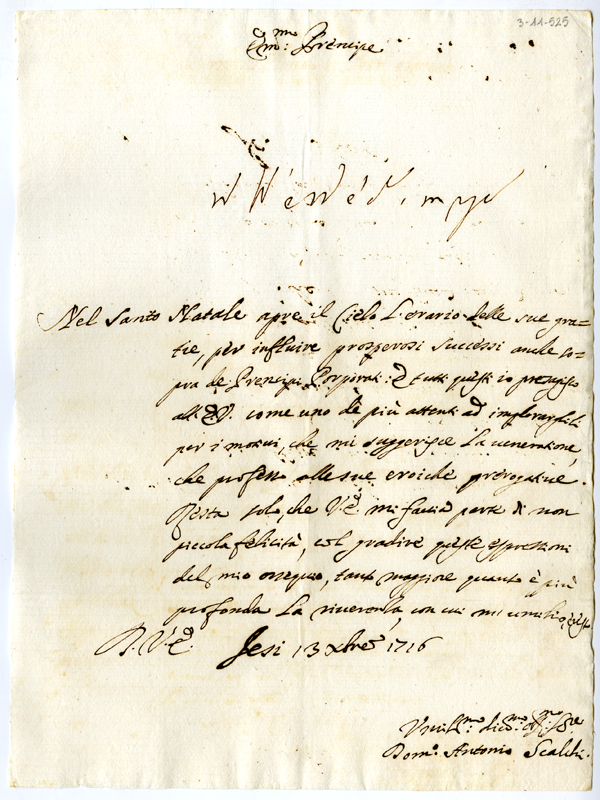 3-11-525
Em.mo Prencipe
Nel Santo Natale apre il Cielo l'erario delle sue gra=
tie, per influire prosperosi successi anche so=
pra de Prencipi Porporati: E tutti questi io presagisco
all'E.V. come uno de più attenti ad implorargliti
per i motivi, che mi suggerisce la veneratione,
che professo alle sue eroiche prerogative.
Resta solo, che V.E. mi faccia parte di non
piccola felicità, col gradire queste espressioni
del mio ossequio, tanto maggiore quanto è più
profonda la riverenza, con cui mi umilio, e resto
D. V. E. Jesi 13 Xbre 1716
Umill.mo dev.mo et
Dom.o Antonio Scalchi.